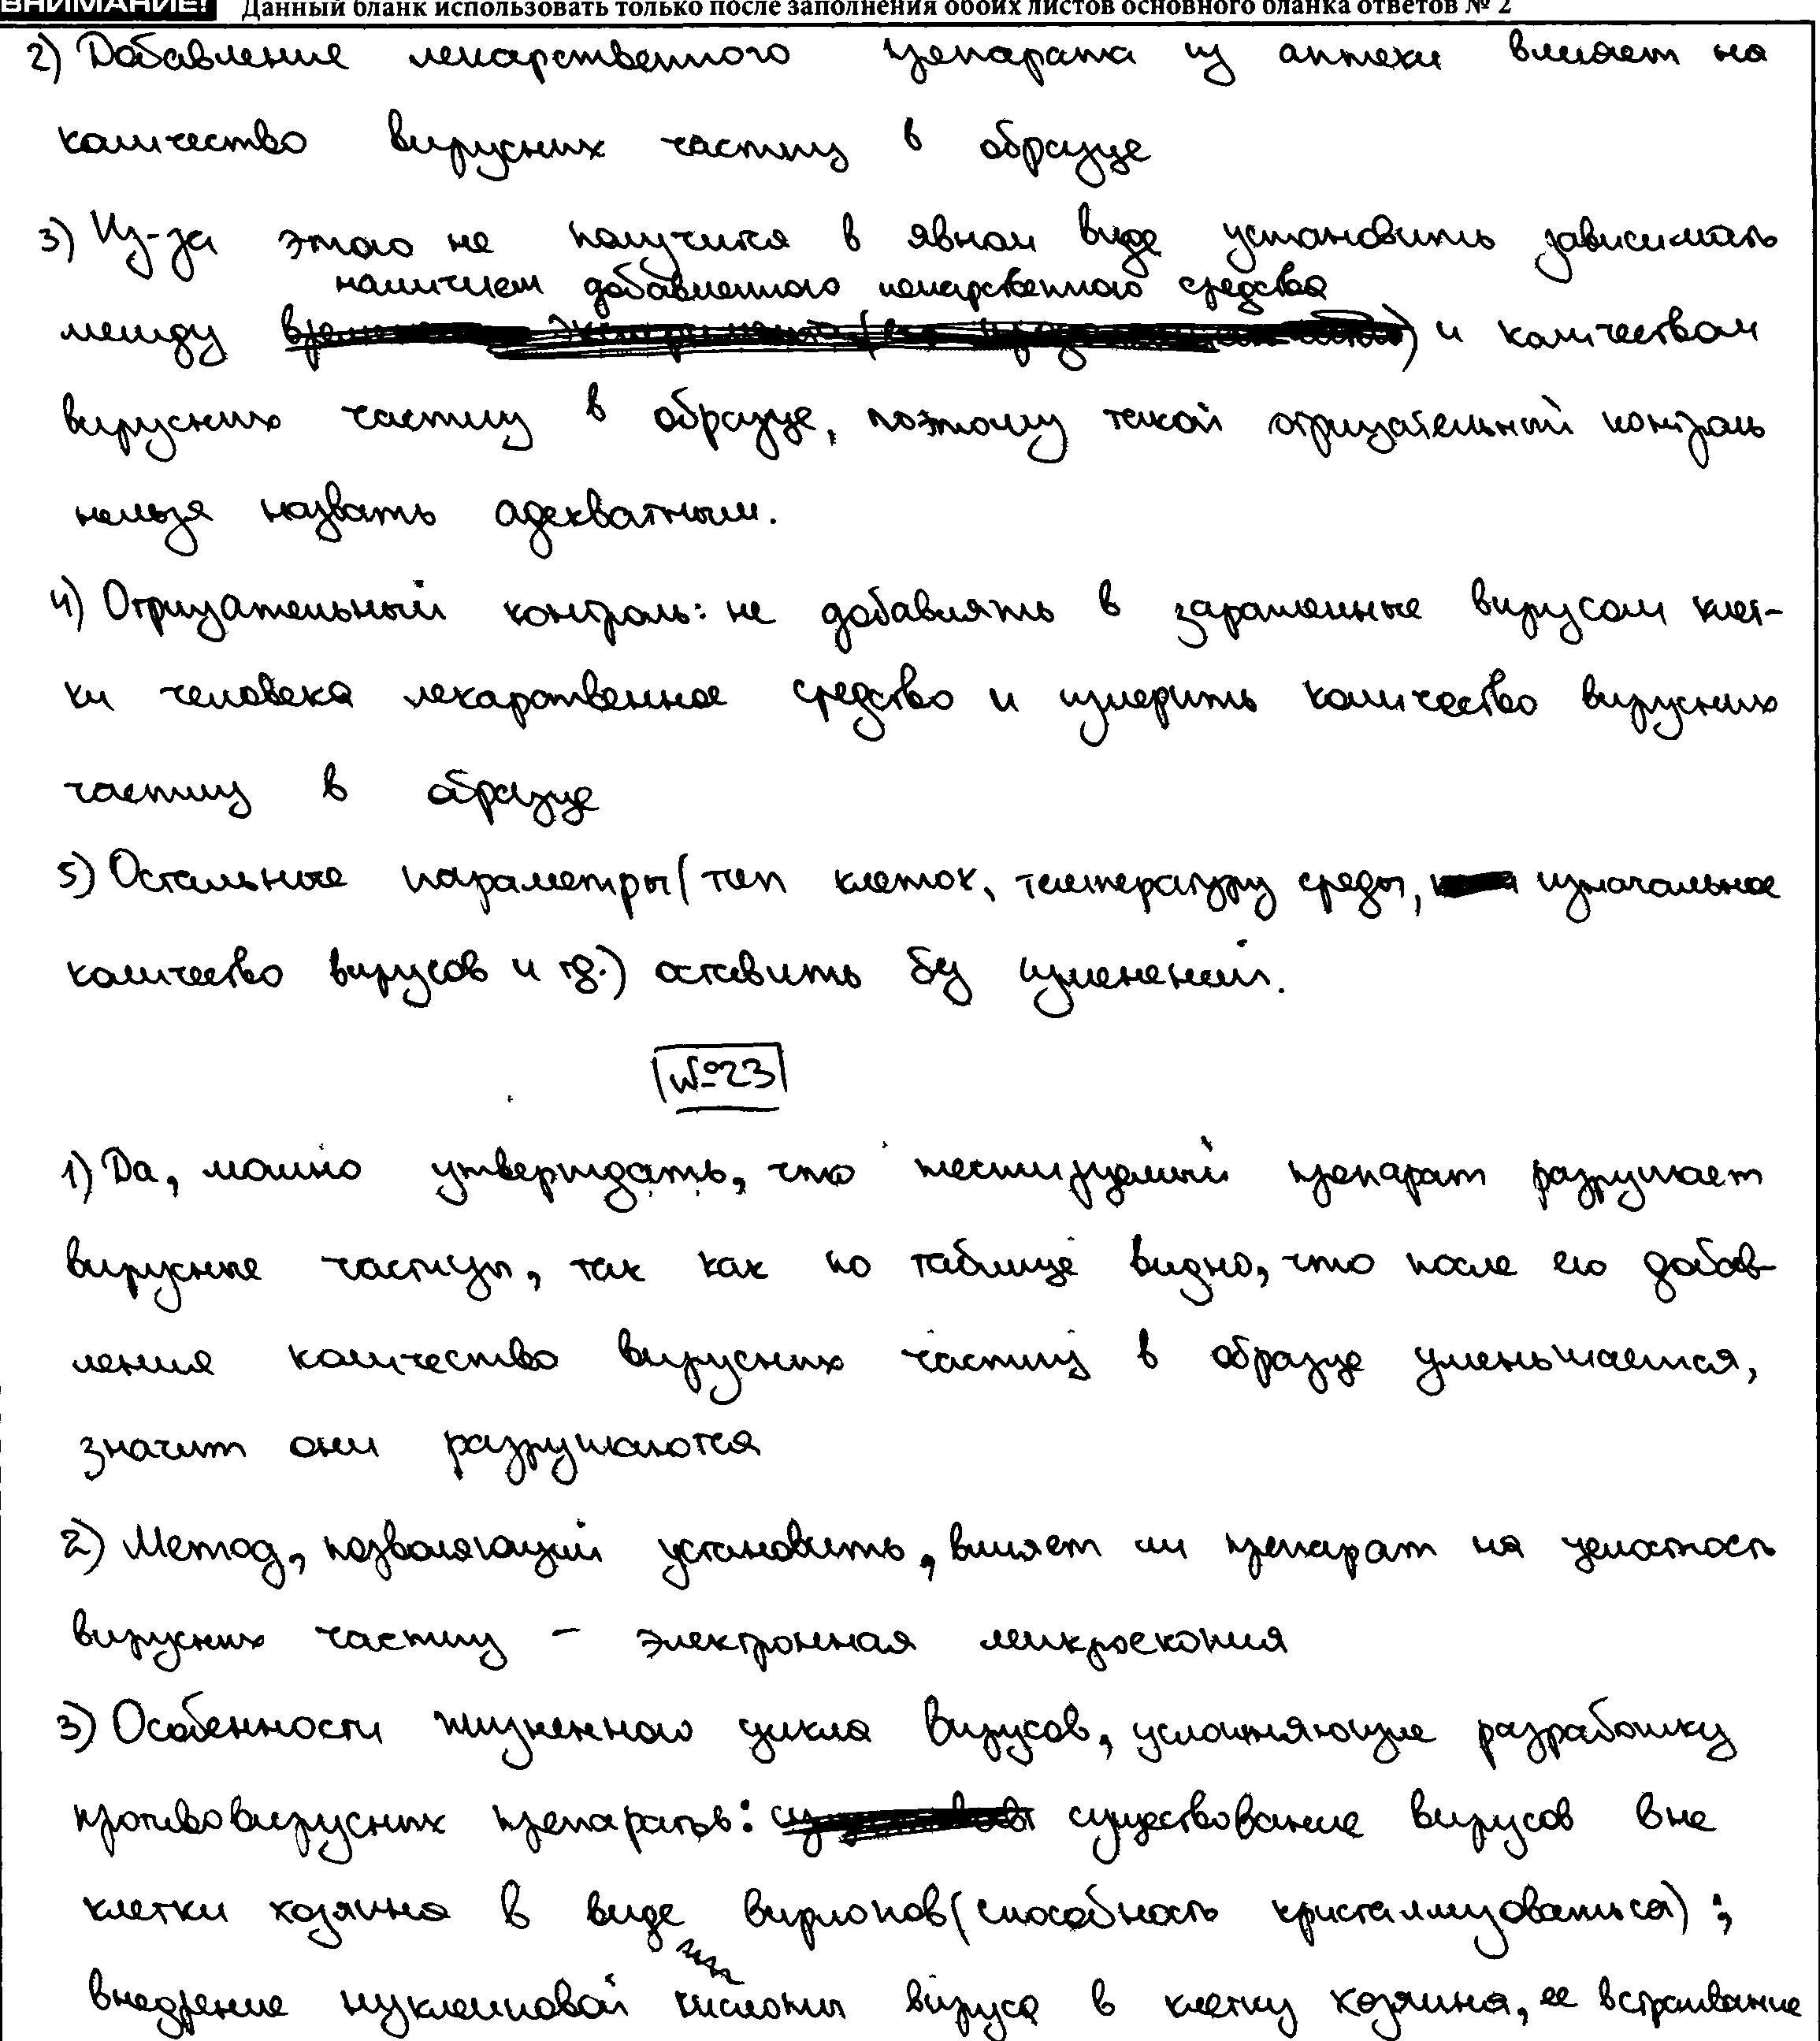 ВНИМАНИЕ! Данный бланк использовать только после заполнения обоих листов основного бланка ответов № 2
2) Добавление лекарственного препарата из аптеки влияет на
количество вирусных частиц в образце
3) Из-за этого не получится в явном виде установить зависимость
наличием добавленного лекарственного средства
между и количеством
вирусных частиц в образце, поэтому такой отрицательный контроль
нельзя назвать адекватным.
4) Отрицательный контроль: не добавлять в зараженные вирусом клет-
ки человека лекарственное средство и измерить количество вирусных
частиц в образце
5) Остальные параметры (тип клеток, температуру среды, изначальное
количество вирусов и тд.) оставить без изменений.
№23
1) Да, можно утверждать, что тестируемый препарат разрушает
вирусные частицы, так как по таблице видно, что после его добав-
ления количество вирусных частиц в образце уменьшается,
значит они разрушаются
2) Метод, позволяющий установить, влияет ли препарат на целостность
вирусных частиц – электронная микроскопия
3) Особенности жизненного цикла вирусов, усложняющие разработку
противовирусных препаратов: существование вирусов вне
клетки хозяина в виде вирионов (способность кристаллизоваться);
внедрение нуклеиновой кислоты вируса в клетку хозяина, ее встраивание